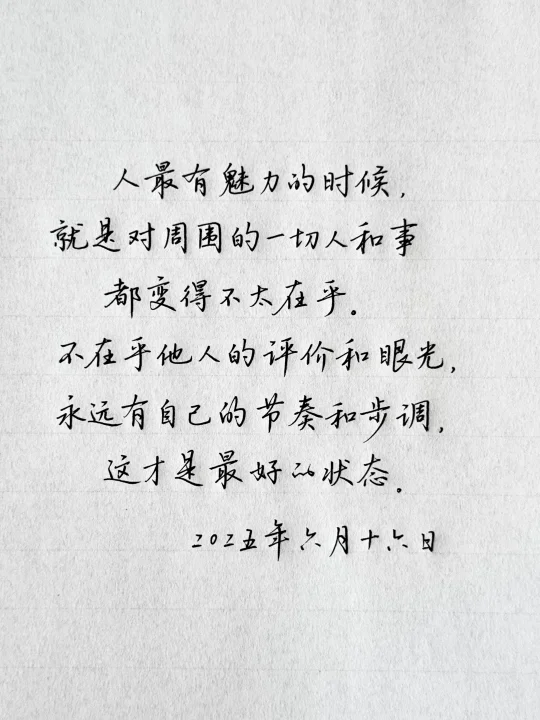 人最有魅力的时候，
就是对周围的一切人和事
都变得不太在乎。
不在乎他人的评价和眼光，
永远有自己的节奏和步调，
这才是最好的状态。
202五年六月十六日